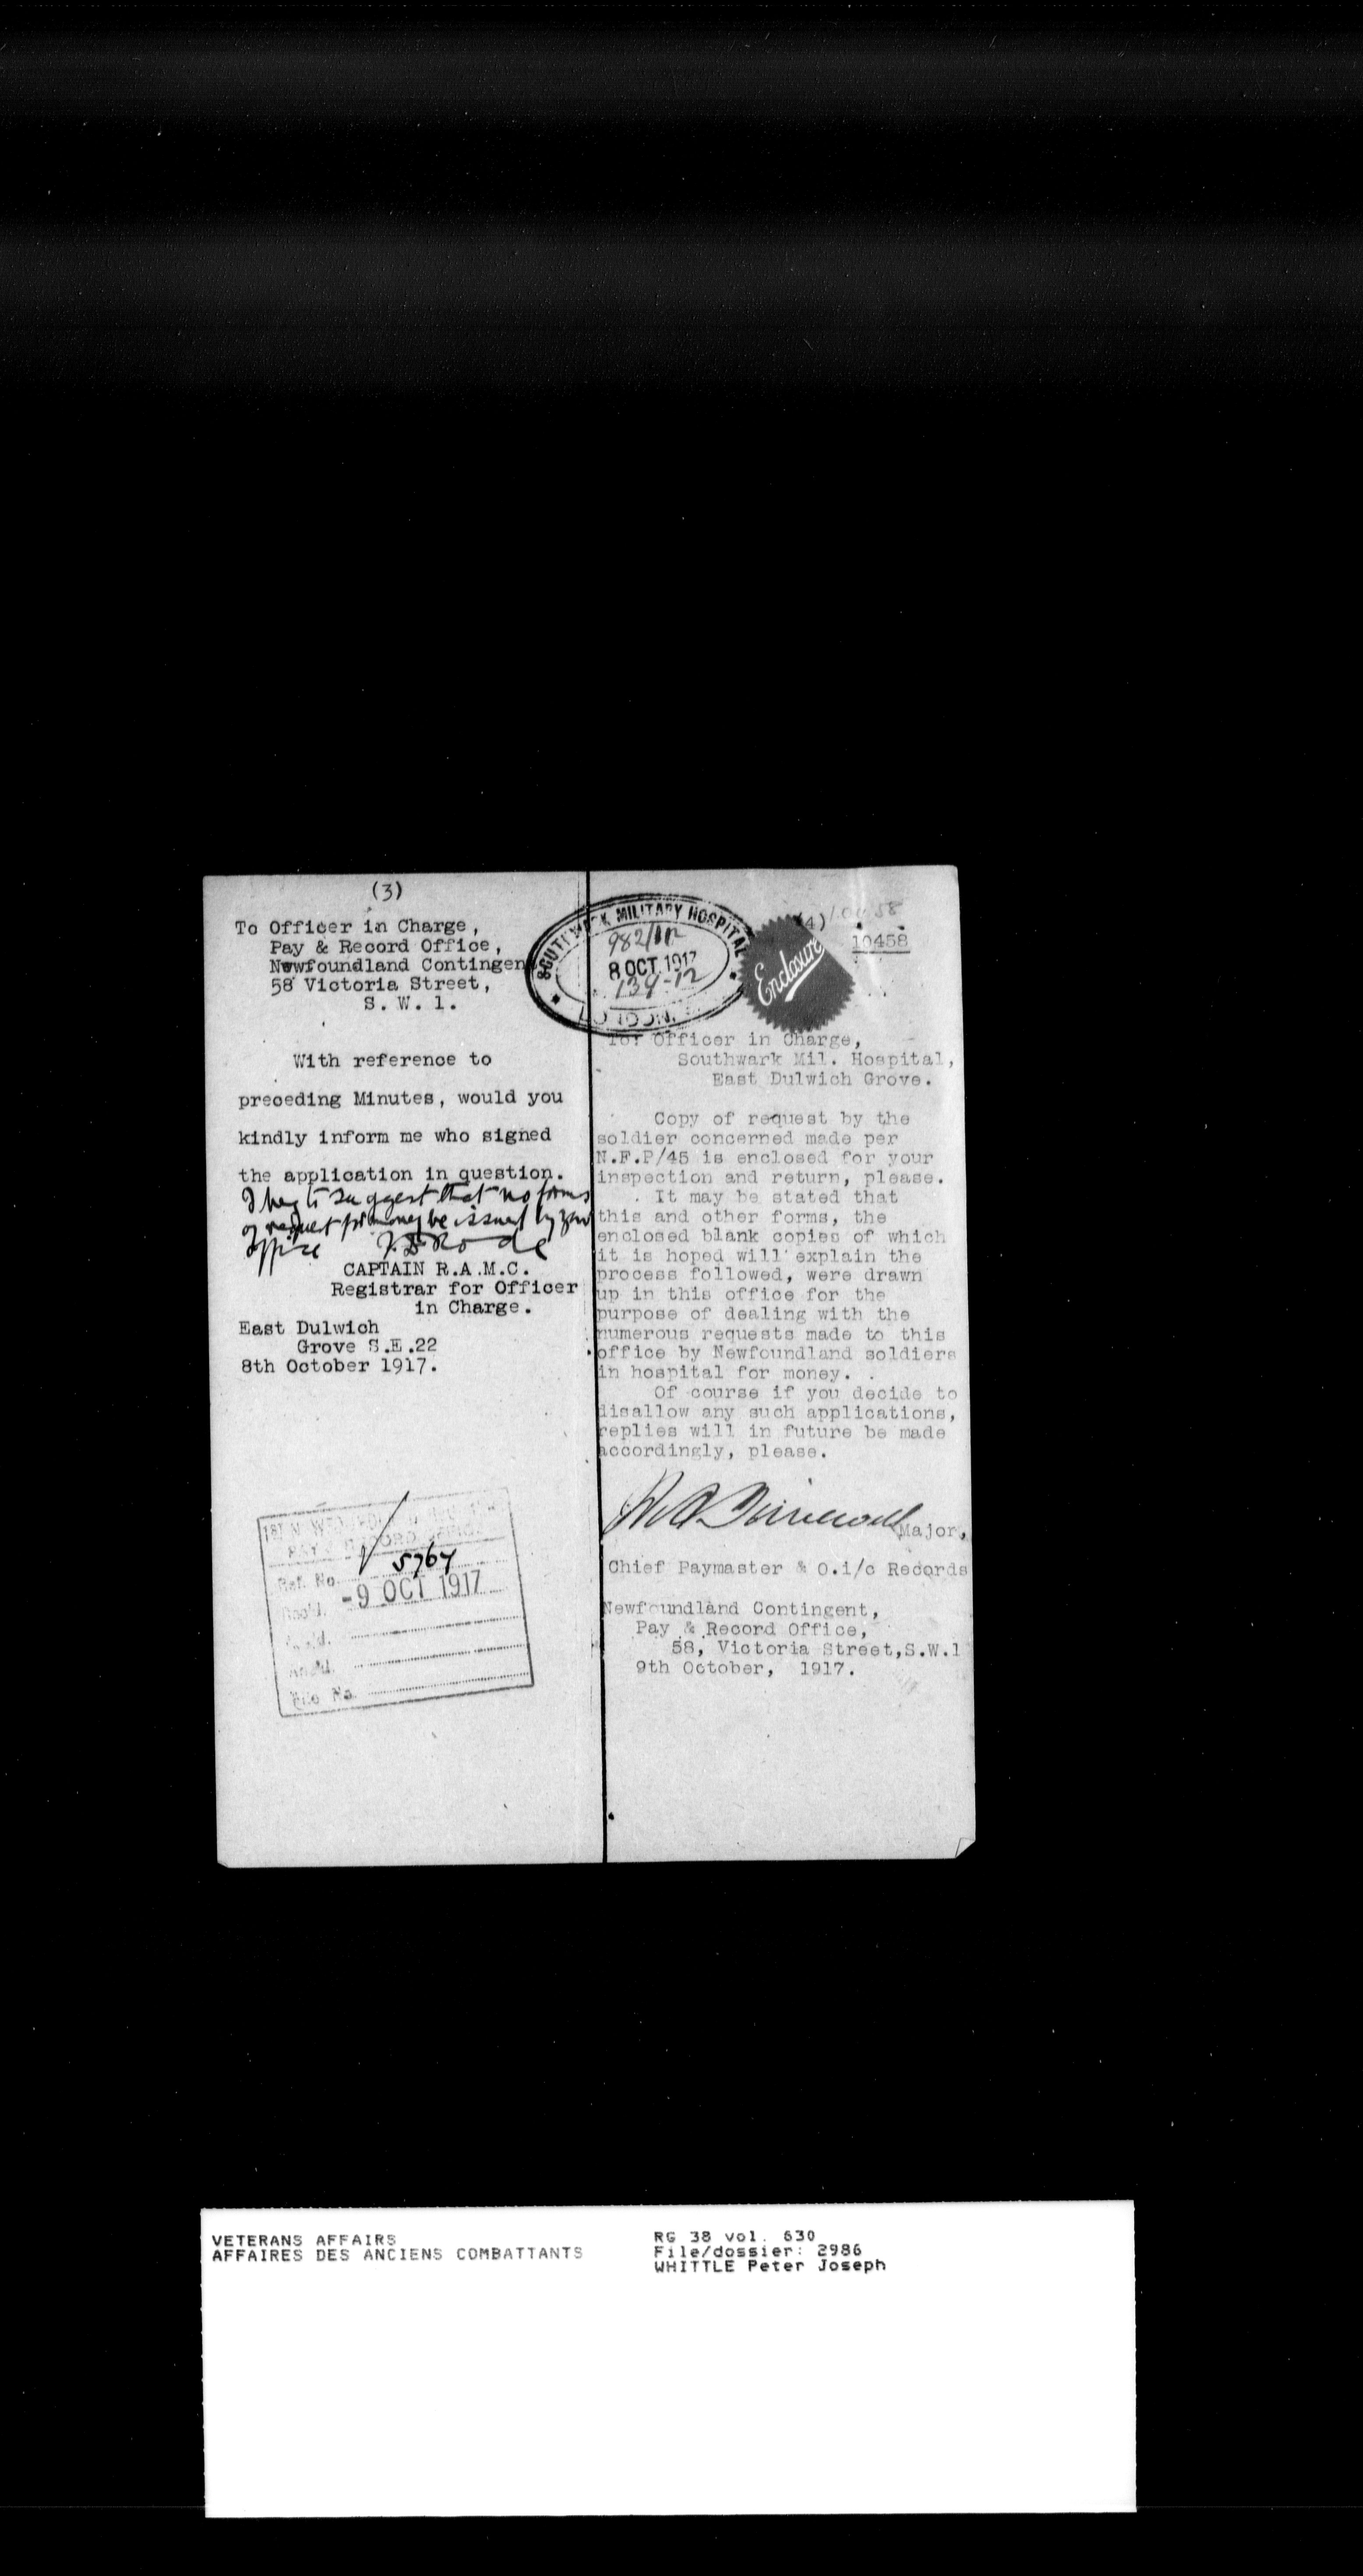 (3)
To Officer in Charge,
Pay & Record Office,
Newfoundland Contingen
58 Victoria Street,
S. W. 1.
With reference to
preceding Minutes, would you
kindly inform me who signed
the application in question.
I beg to suggest that no forms
of request for money be issued by your
office
CAPTAIN R.A.M.C.
Registrar for Officer
in Charge.
East Dulwich
Grove S.E.22
8th October 1917.
PAY & RECORD OFFICE
Ref. No. 5767
Recd. -9 OCT 1917
Ackd.
Ansd.
File No.
SOUTHWARK MILITARY HOSPITAL
982/
8 OCT. 1917
LONDON,
Enclosure
(4) 10458
10458
To: Officer in Charge,
Southwark Mil. Hospital,
East Dulwich Grove.
Copy of request by the
soldier concerned made per
N.F.P/45 is enclosed for your
inspection and return, please.
It may be stated that
this and other forms, the
enclosed blank copies of which
it is hoped will explain the
process followed, were drawn
up in this office for the
purpose of dealing with the
numerous requests made to this
office by Newfoundland soldiers
in hospital for money.
Of course if you decide to
disallow any such applications,
replies will in future be made
accordingly, please.
Major,
Chief Paymaster & O.i/c Records
Newfoundland Contingent,
Pay & Record Office,
58, Victoria Street,S.W.1
9th October, 1917.
VETERANS AFFAIRS
AFFAIRES DES ANCIENS COMBATTANTS
RG 38 vol. 630
File/dossier: 2986
WHITTLE Peter Joseph